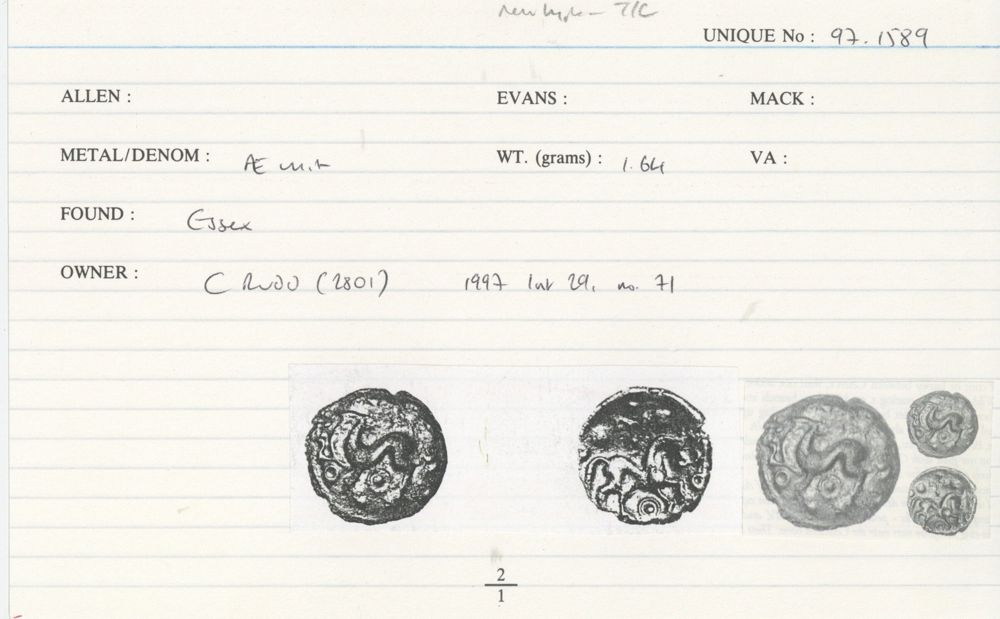 T/C
UNIQUE No : 97.1589
ALLEN : EVANS : MACK :
METAL/DENOM : Æ unit WT. (grams) : 1.64 VA :
FOUND : Essex
OWNER : C RUDD (2801) 1997 list 29, no. 71
2
1